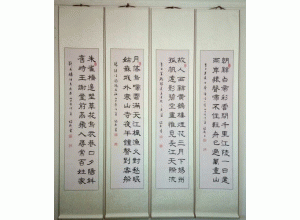 朝辭白帝彩雲間千里江陵一日還
兩岸猿聲啼不住輕舟已過萬重山
故人西辭黃鶴樓煙花三月下揚州
孤帆遠影碧空盡唯見長江天際流
月落烏啼霜滿天江楓漁火對愁眠
姑蘇城外寒山寺夜半鐘聲到客船
朱雀橋邊野草花烏衣巷口夕陽斜
舊時王謝堂前燕飛入尋常百姓家